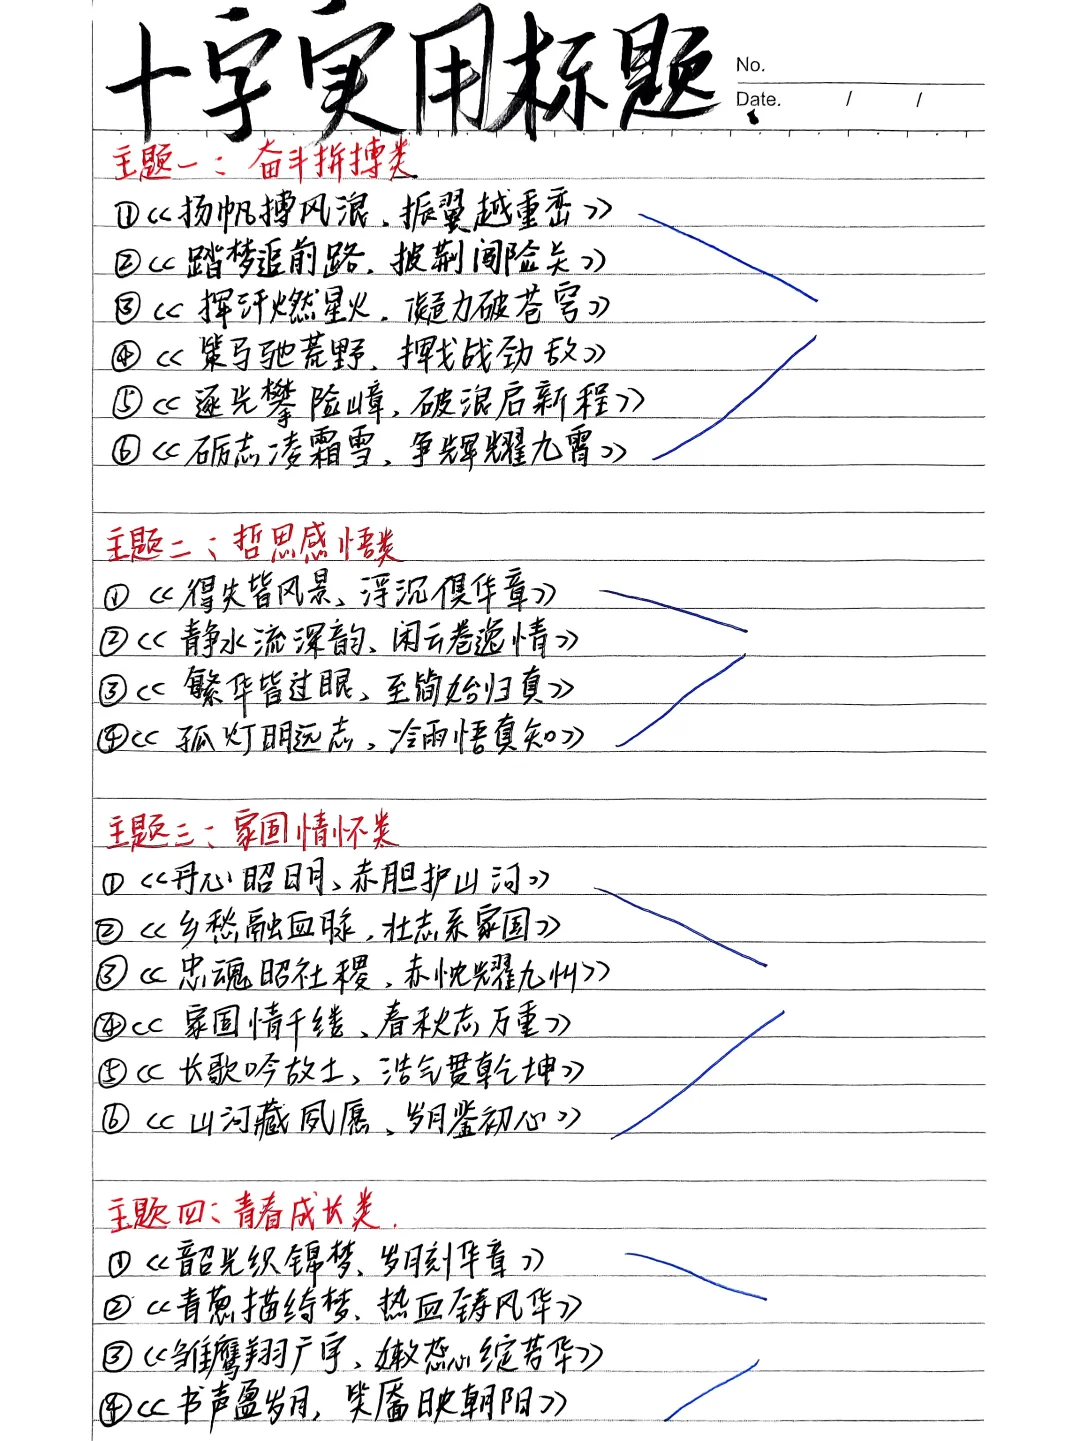 十字实用标题
No.
Date. / /
主题一：奋斗拼搏类
①《扬帆搏风浪，振翼越重峦》
②《踏梦追前路，披荆闯险关》
③《挥汗燃星火，凝力破苍穹》
④《策马驰荒野，挥戈战劲敌》
⑤《逐光攀险嶂，破浪启新程》
⑥《砺志凌霜雪，争辉耀九霄》
主题二：哲思感悟类
①《得失皆风景，浮沉俱华章》
②《静水流深韵，闲云卷逸情》
③《繁华皆过眼，至简始归真》
④《孤灯明远志，冷雨悟真知》
主题三：家国情怀类
①《丹心昭日月，赤胆护山河》
②《乡愁融血脉，壮志系家国》
③《忠魂昭社稷，赤忱耀九州》
④《家国情千缕，春秋志万重》
⑤《长歌吟故土，浩气贯乾坤》
⑥《山河藏夙愿，岁月鉴初心》
主题四：青春成长类.
①《韶光织锦梦，岁月刻华章》
②《青葱描绮梦，热血铸风华》
③《雏鹰翔广宇，嫩蕊绽芳华》
④《书声盈岁月，笑靥映朝阳》